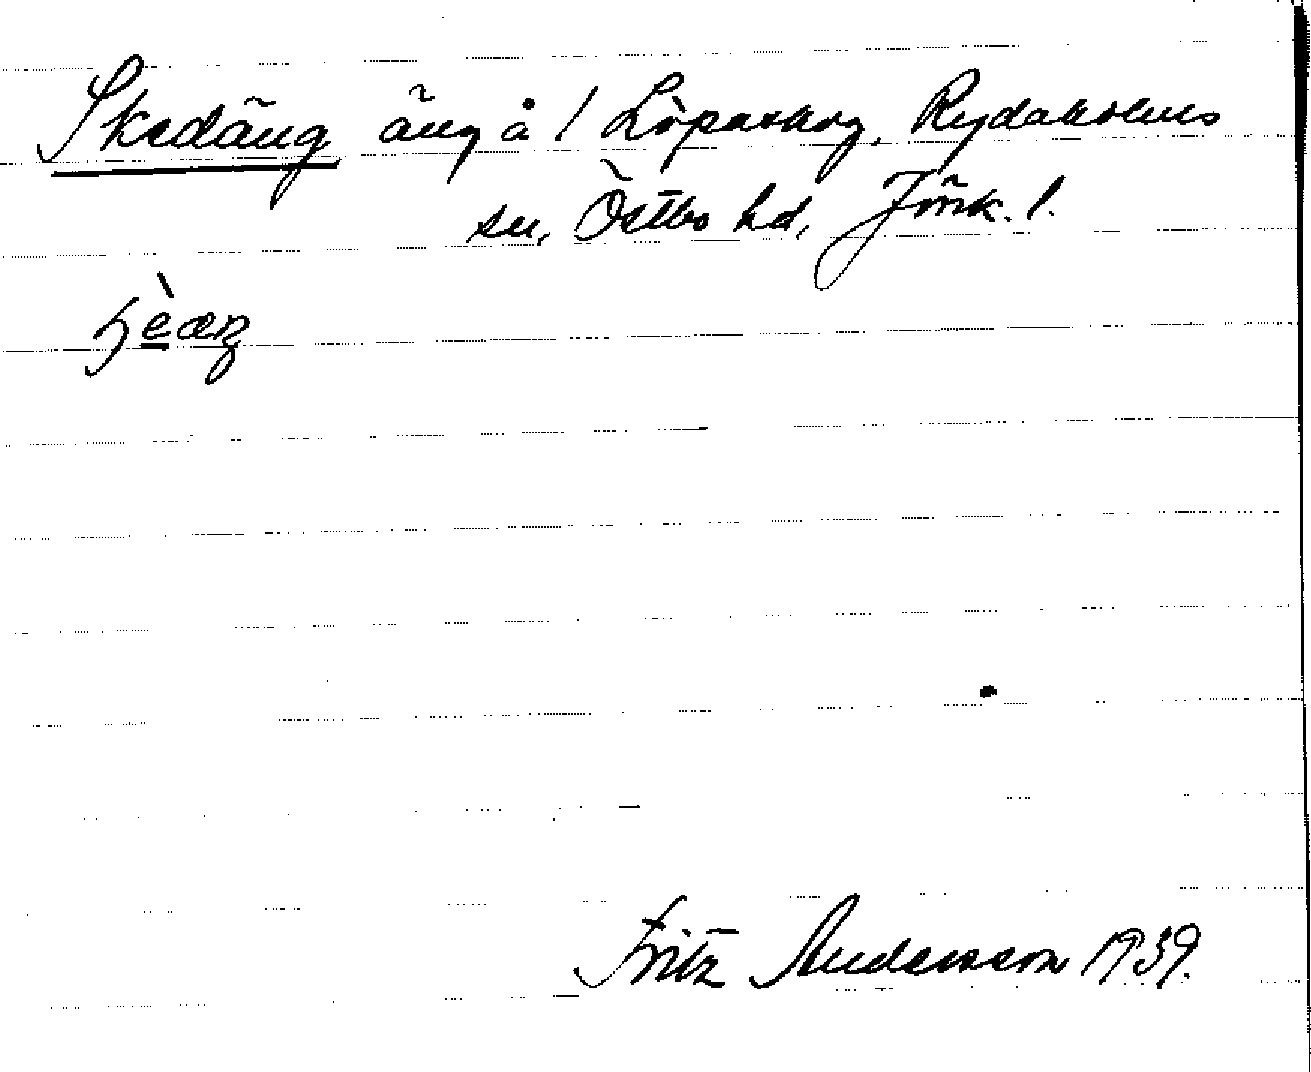 Skedäng äng å / Löpaskog, Rydaholms
sn, Östbo hd, Jönk. l.
Fritz Andersson 1939.